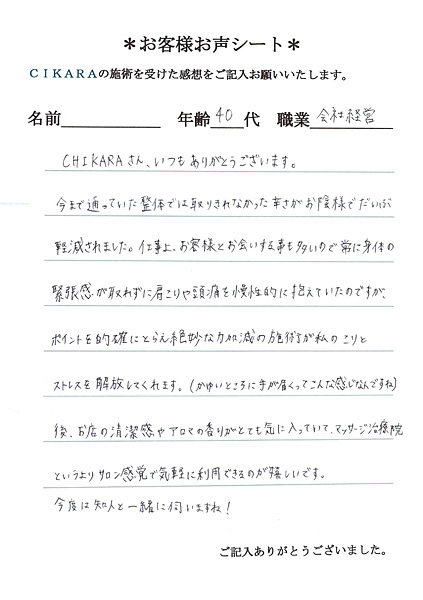 ＊お客様お声シート＊
ＣＩＫＡＲＡの施術を受けた感想をご記入お願いいたします。
名前＿＿＿＿＿＿ 年齢 40 代 職業 会社経営
CHIKARAさん、いつもありがとうございます。
今まで通っていた整体では取りきれなかった辛さがお陰様でだいぶ
軽減されました。仕事上、お客様とお会いする事も多いので常に身体の
緊張感が取れずに肩こりや頭痛を慢性的に抱えていたのですが、
ポイントを的確にとらえ絶妙な力加減の施術が私のこりと
ストレスを解放してくれます。（かゆいところに手が届くってこんな感じなんですね）
後、お店の清潔感やアロマの香りがとても気に入っていて、マッサージ治療院
というよりサロン感覚で気軽に利用できるのが嬉しいです。
今度は知人と一緒に伺いますね！
ご記入ありがとうございました。